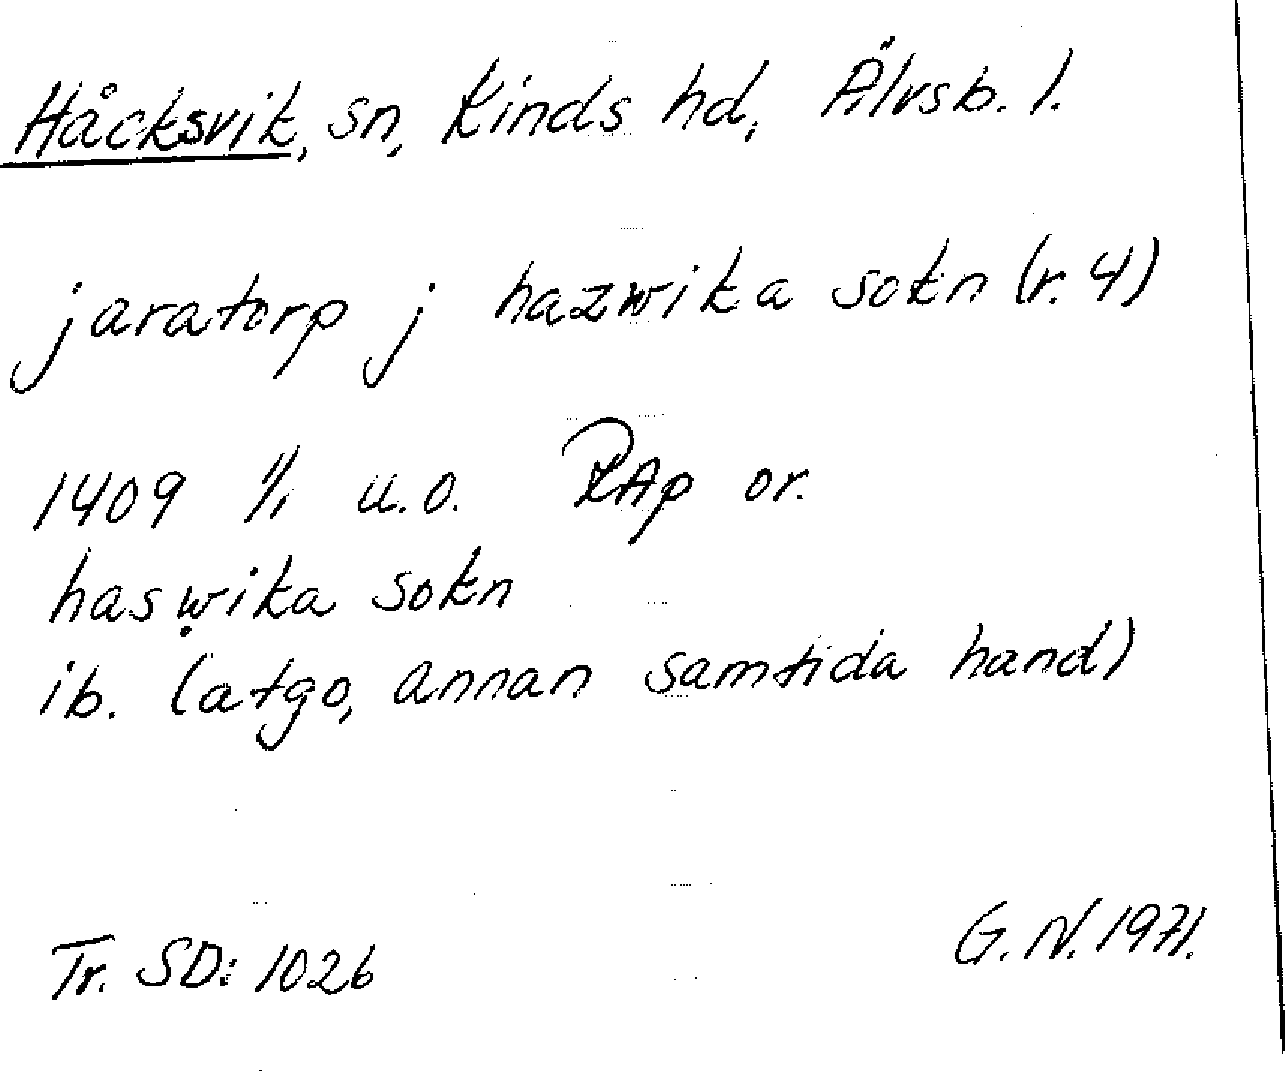 Håcksvik, sn, Kinds hd, Älvsb. l.
jaratorp j hazwika sokn (r. 4)
1409 1/1 u.o. RAp or.
hasẉika sokn
ib. (atgo, annan samtida hand)
Tr. SD: 1026
G. N. 1971.